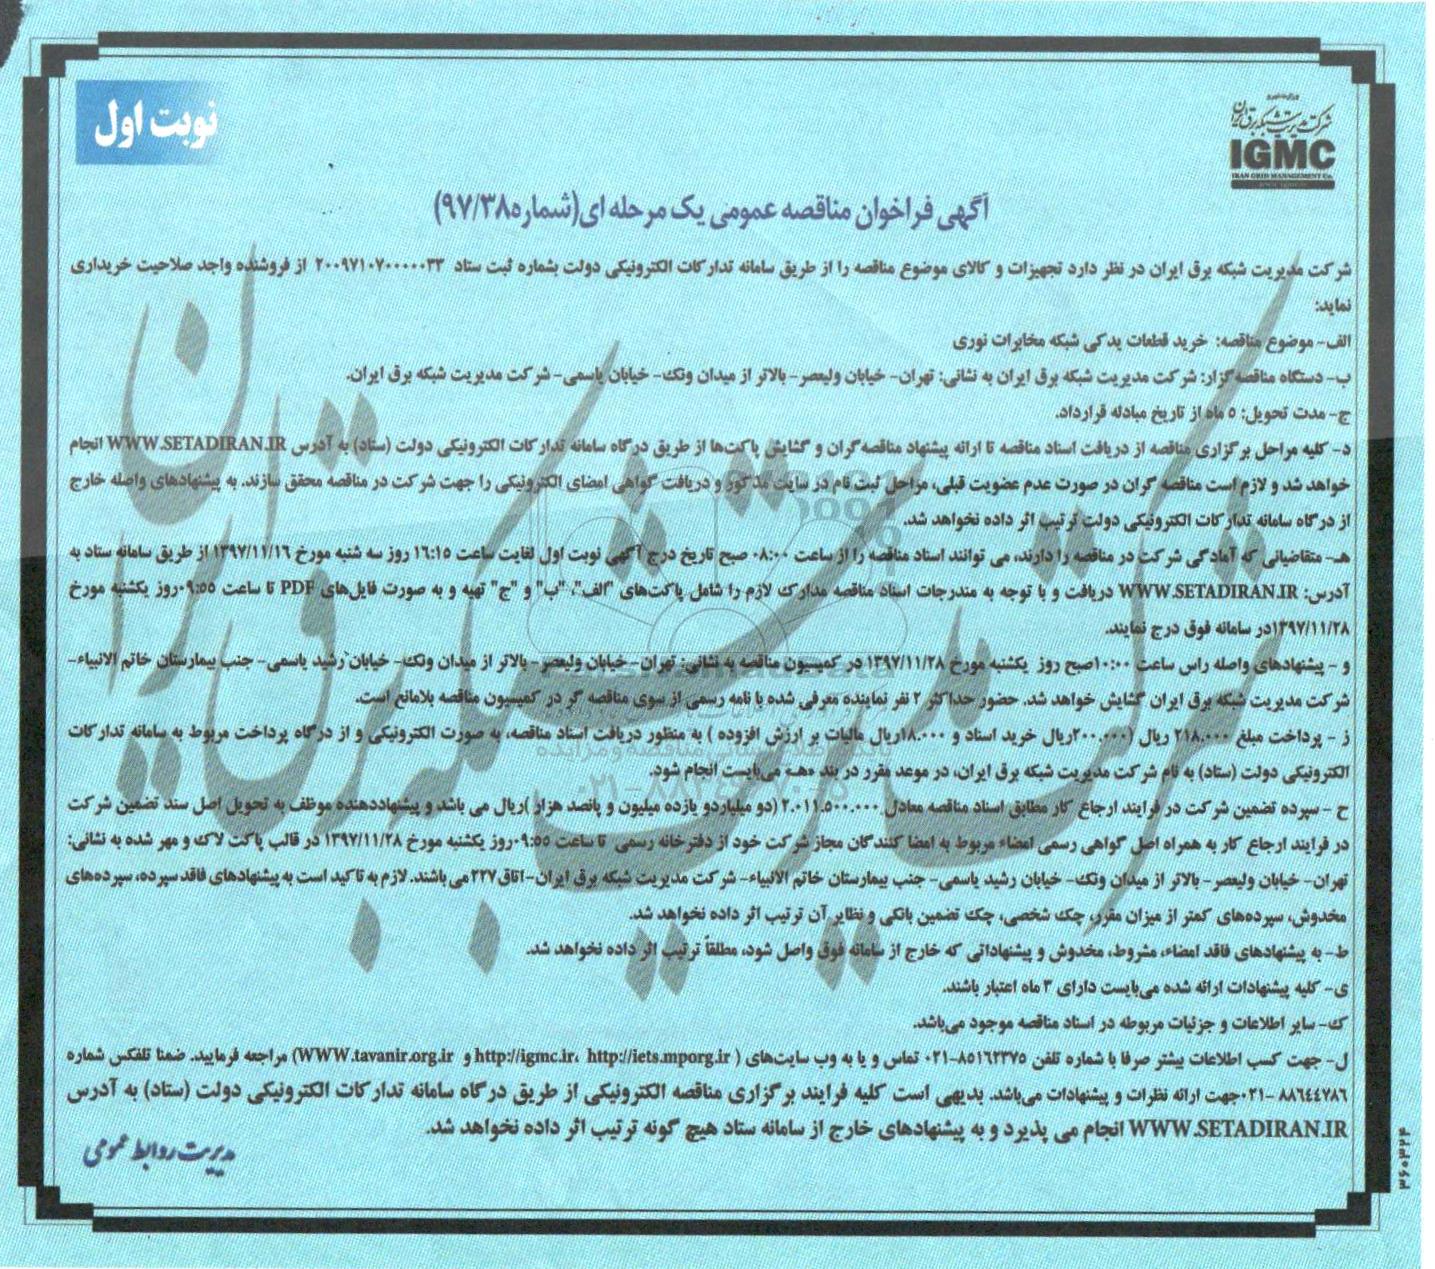 نوبت اول
شرکت مدیریت شبکه برق ایران
IGMC
IRAN GRID MANAGEMENT Co.
آگهی فراخوان مناقصه عمومی یک مرحله ای(شماره۹۷/۳۸)
شرکت مدیریت شبکه برق ایران در نظر دارد تجهیزات و کالای موضوع مناقصه را از طریق سامانه تدارکات الکترونیکی دولت بشماره ثبت ستاد ۲۰۰۹۷۱۰۷۰۰۰۰۰۳۳ از فروشنده واجد صلاحیت خریداری
نماید:
الف- موضوع مناقصه: خرید قطعات یدکی شبکه مخابرات نوری
ب- دستگاه مناقصه‌گزار: شرکت مدیریت شبکه برق ایران به نشانی: تهران- خیابان ولیعصر- بالاتر از میدان ونک- خیابان یاسمی- شرکت مدیریت شبکه برق ایران.
ج- مدت تحویل: ۵ ماه از تاریخ مبادله قرارداد.
د- کلیه مراحل برگزاری مناقصه از دریافت اسناد مناقصه تا ارائه پیشنهاد مناقصه‌گران و گشایش پاکت‌ها از طریق درگاه سامانه تدارکات الکترونیکی دولت (ستاد) به آدرس WWW.SETADIRAN.IR انجام
خواهد شد و لازم است مناقصه گران در صورت عدم عضویت قبلی، مراحل ثبت نام در سایت مذکور و دریافت گواهی امضای الکترونیکی را جهت شرکت در مناقصه محقق سازند. به پیشنهادهای واصله خارج
از درگاه سامانه تدارکات الکترونیکی دولت ترتیب اثر داده نخواهد شد.
هـ- متقاضیانی که آمادگی شرکت در مناقصه را دارند، می توانند اسناد مناقصه را از ساعت ۰۸:۰۰ صبح تاریخ درج آگهی نوبت اول لغایت ساعت ۱۶:۱۵ روز سه شنبه مورخ ۱۳۹۷/۱۱/۱۶ از طریق سامانه ستاد به
آدرس: WWW.SETADIRAN.IR دریافت و با توجه به مندرجات اسناد مناقصه مدارک لازم را شامل پاکت‌های "الف"، "ب" و "ج" تهیه و به صورت فایل‌های PDF تا ساعت ۰۹:۵۵روز یکشنبه مورخ
۱۳۹۷/۱۱/۲۸در سامانه فوق درج نمایند.
و - پیشنهادهای واصله راس ساعت ۱۰:۰۰صبح روز یکشنبه مورخ ۱۳۹۷/۱۱/۲۸ در کمیسیون مناقصه به نشانی: تهران- خیابان ولیعصر- بالاتر از میدان ونک- خیابان رشید یاسمی- جنب بیمارستان خاتم الانبیاء-
شرکت مدیریت شبکه برق ایران گشایش خواهد شد. حضور حداکثر ۲ نفر نماینده معرفی شده با نامه رسمی از سوی مناقصه گر در کمیسیون مناقصه بلامانع است.
ز - پرداخت مبلغ ۲۱۸.۰۰۰ ریال (۲۰۰.۰۰۰ریال خرید اسناد و ۱۸.۰۰۰ریال مالیات بر ارزش افزوده ) به منظور دریافت اسناد مناقصه، به صورت الکترونیکی و از درگاه پرداخت مربوط به سامانه تدارکات
الکترونیکی دولت (ستاد) به نام شرکت مدیریت شبکه برق ایران، در موعد مقرر در بند «هـ» می‌بایست انجام شود.
ح - سپرده تضمین شرکت در فرایند ارجاع کار مطابق اسناد مناقصه معادل ۲.۰۱۱.۵۰۰.۰۰۰ (دو میلیاردو یازده میلیون و پانصد هزار )ریال می باشد و پیشنهاددهنده موظف به تحویل اصل سند تضمین شرکت
در فرایند ارجاع کار به همراه اصل گواهی رسمی امضاء مربوط به امضا کنندگان مجاز شرکت خود از دفترخانه رسمی تا ساعت ۰۹:۵۵روز یکشنبه مورخ ۱۳۹۷/۱۱/۲۸ در قالب پاکت لاک و مهر شده به نشانی:
تهران- خیابان ولیعصر- بالاتر از میدان ونک- خیابان رشید یاسمی- جنب بیمارستان خاتم الانبیاء- شرکت مدیریت شبکه برق ایران-اتاق۲۲۷ می باشند. لازم به تاکید است به پیشنهادهای فاقد سپرده، سپرده‌های
مخدوش، سپرده‌های کمتر از میزان مقرر، چک شخصی، چک تضمین بانکی و نظایر آن ترتیب اثر داده نخواهد شد.
ط- به پیشنهادهای فاقد امضاء، مشروط، مخدوش و پیشنهاداتی که خارج از سامانه فوق واصل شود، مطلقاً ترتیب اثر داده نخواهد شد.
ی- کلیه پیشنهادات ارائه شده می‌بایست دارای ۳ ماه اعتبار باشند.
ک- سایر اطلاعات و جزئیات مربوطه در اسناد مناقصه موجود می‌باشد.
ل- جهت کسب اطلاعات بیشتر صرفا با شماره تلفن ۸۵۱۶۲۳۷۵-۰۲۱ تماس و یا به وب سایت‌های ( http://igmc.ir، http://iets.mporg.ir و WWW.tavanir.org.ir) مراجعه فرمایید. ضمنا تلفکس شماره
۸۸۶۴۴۷۸۶ -۰۲۱جهت ارائه نظرات و پیشنهادات می‌باشد. بدیهی است کلیه فرایند برگزاری مناقصه الکترونیکی از طریق درگاه سامانه تدارکات الکترونیکی دولت (ستاد) به آدرس
WWW.SETADIRAN.IR انجام می پذیرد و به پیشنهادهای خارج از سامانه ستاد هیچ گونه ترتیب اثر داده نخواهد شد.
مدیریت روابط عمومی
۳۶۰۳۲۴